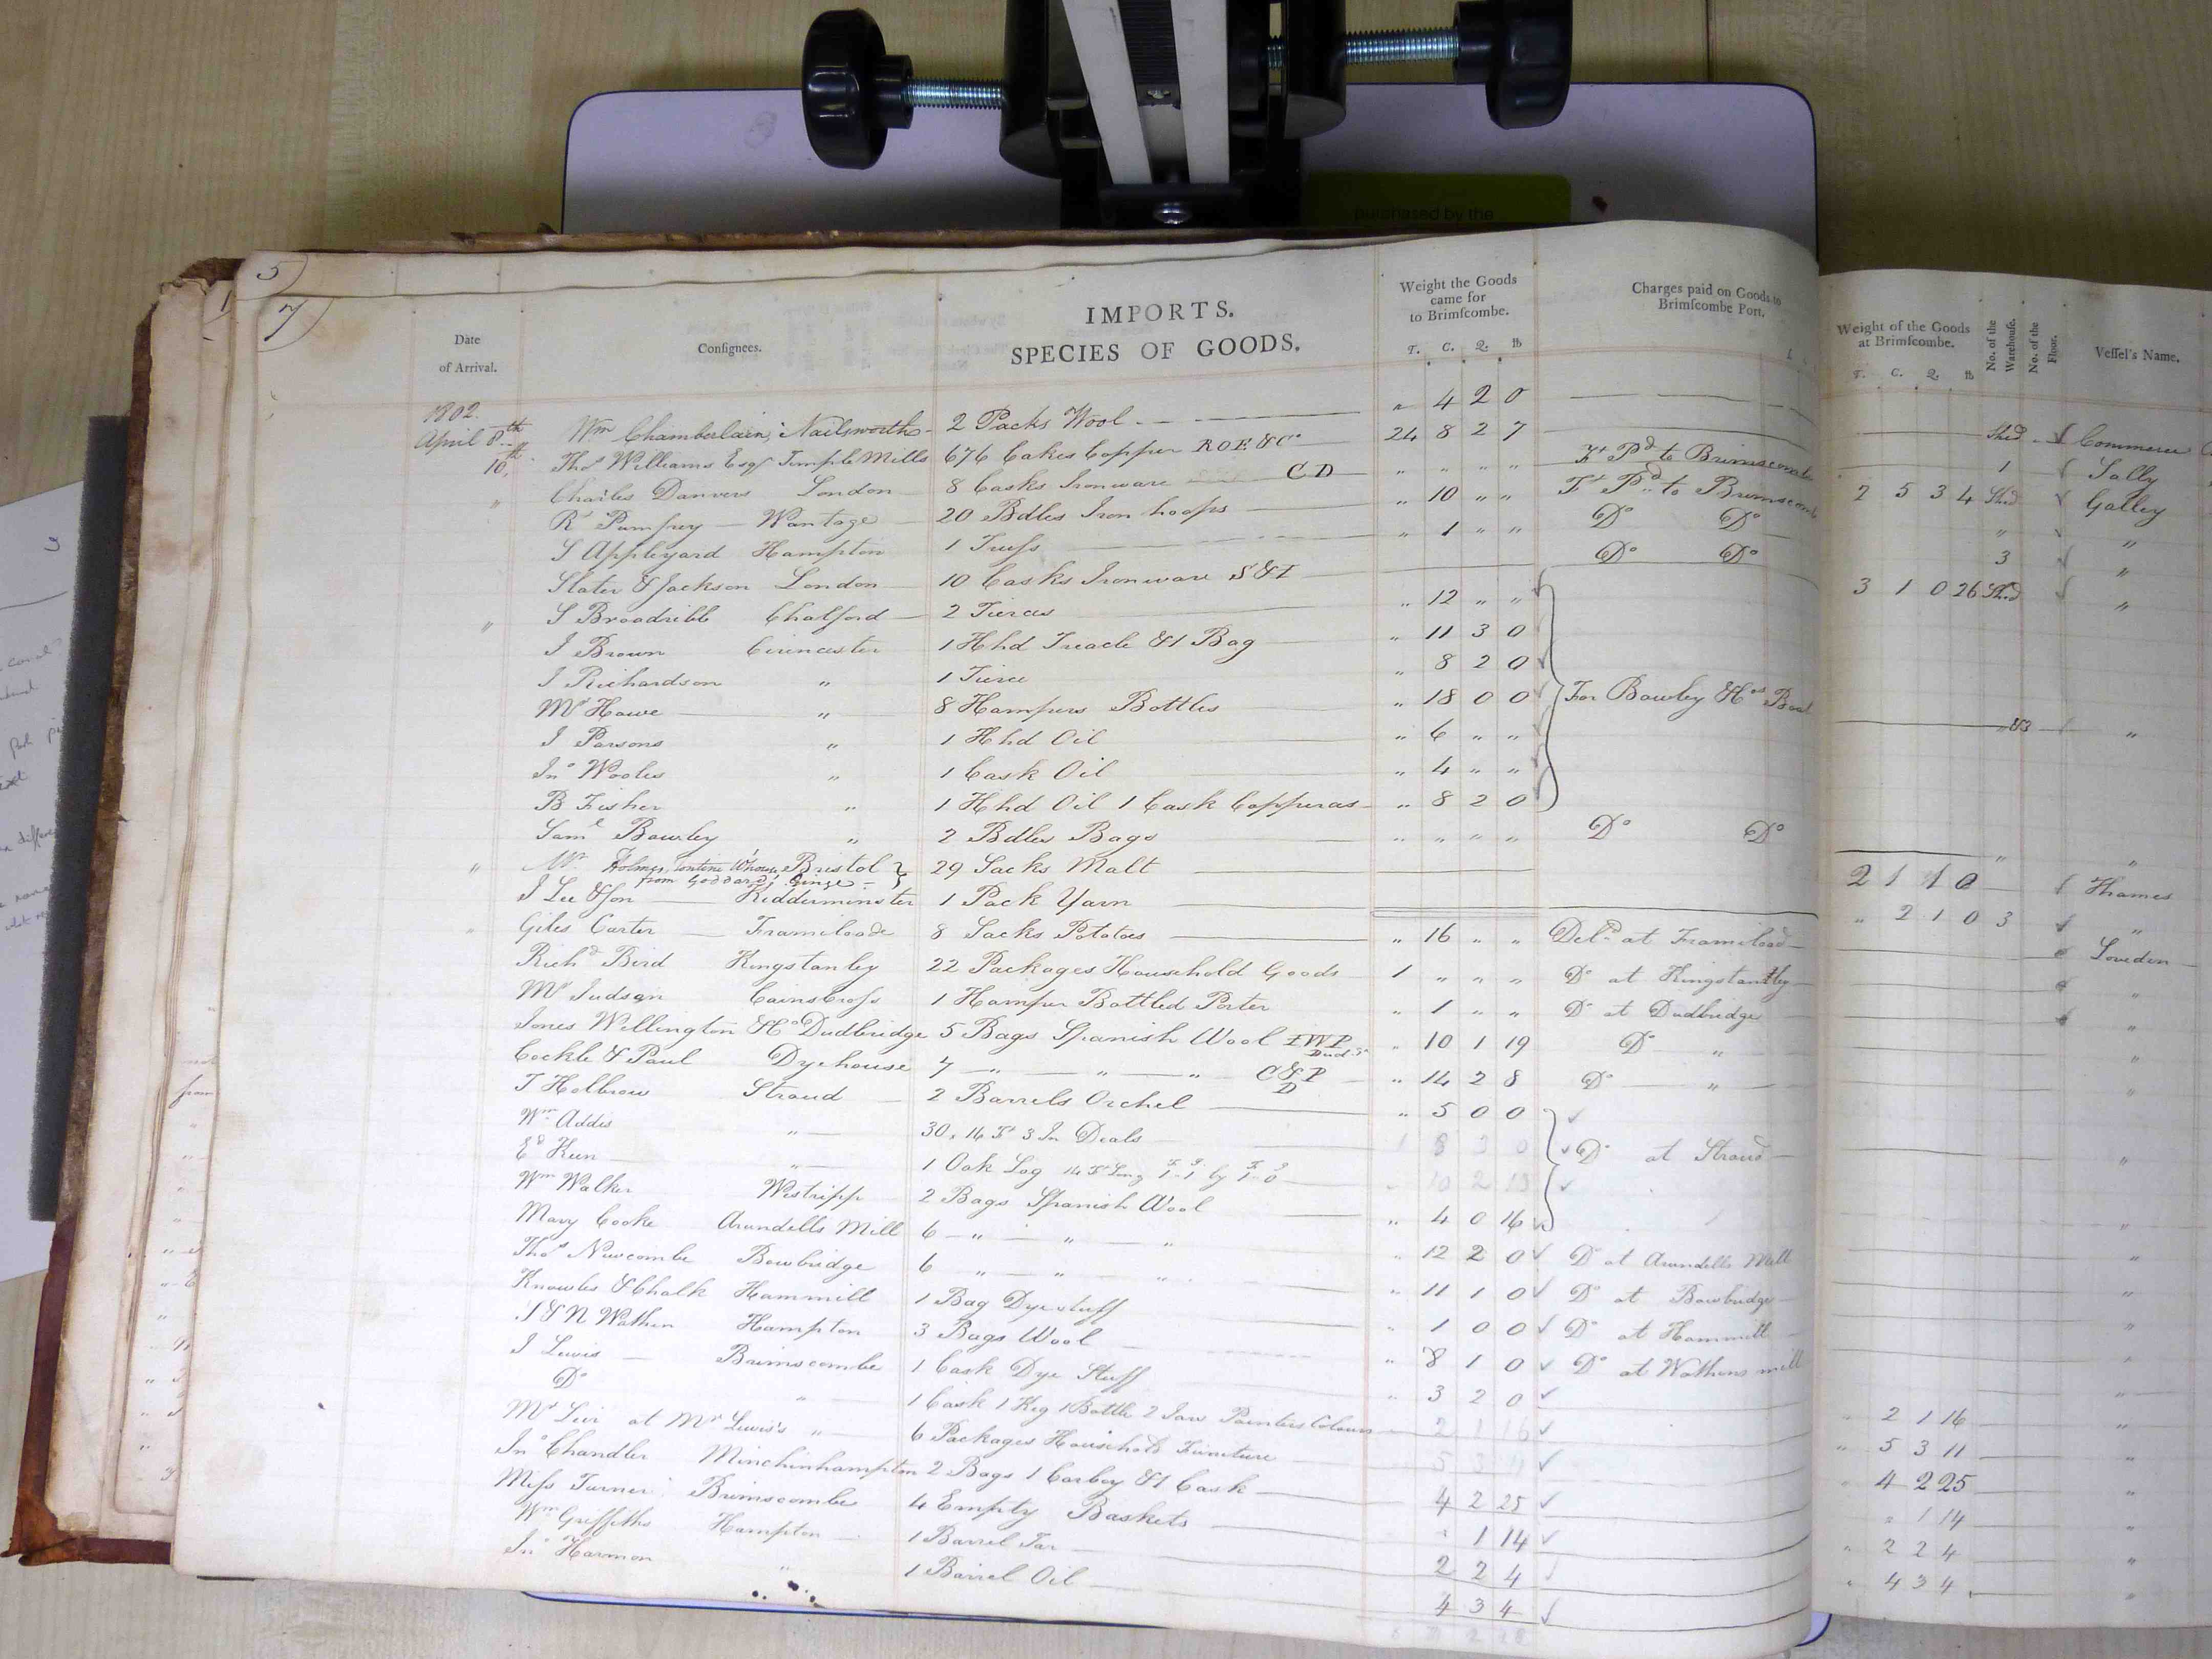 purchased by the
5
7
IMPORTS.
SPECIES OF GOODS.
Date
of Arrival.
Consignees.
Weight the Goods
came for
to Brimscombe.
T. C. Q. lb
Charges paid on Goods to
Brimscombe Port.
Weight of the Goods
at Brimscombe.
T. C. Q. lb
No. of the
Warehouse.
No. of the
Floor.
Vessel's Name.
1802.
April 8th Wm Chamberlain, Nailsworth 2 Packs Wool " 4 2 0 Shed Commerce
10th Thos Williams Esqr Temple Mills 676 Cakes Copper ROE & Co 24 8 2 7 1 Sally
" Charles Danvers London 8 Casks Ironware CD " " " " Ft Pd to Brimscombe 2 5 3 4 Shed Galley
Rt Pumfrey Wantage 20 Bdles Iron hoops " 10 " " Ft Pd to Brimscomb " "
S Appleyard Hampton 1 Truss " 1 " " Do Do 3 "
Slater & Jackson London 10 Casks Ironware S&I Do Do 3 1 0 26 Shed "
" S Broadribb Chalford 2 Tierces " 12 " "
I Brown Cirencester 1 Hhd Treacle & 1 Bag " 11 3 0
I Richardson " 1 Tierce " 8 2 0
Mr Howe " 8 Hampers Bottles " 18 0 0 For Bowley & Cos Boat
I Parsons " 1 Hhd Oil " 6 " "
Jno Wooles " 1 Cask Oil " 4 " "
B Fisher " 1 Hhd Oil 1 Cask Copperas " 8 2 0
Saml Bowley " 2 Bdles Bags " " " " Do Do " "
" Mr Holmes, Tontine Whouse, Bristol 29 Sacks Malt 2 1 1 0 Thames
from Goddard,
I Lee & Son Kidderminster 1 Pack Yarn " 2 1 0 3 "
" Giles Carter Framiload 8 Sacks Potatoes " 16 " " Deld at Framiload Loveden
Richd Bird Kingstanley 22 Packages Household Goods 1 " " " Do at Kingstanley "
Mr Judson Cainscross 1 Hamper Bottled Porter " 1 " " Do at Dudbridge "
Jones Wellington & Co Dudbridge 5 Bags Spanish Wool IWP " 10 1 19 Do " "
Cockle & Paul Dyehouse 7 " " " C&P " 14 2 8 Do " "
D
T Holbrow Stroud 2 Barrels Orchel " 5 0 0
Wm Addis " 30, 14 Ft 3 In Deals 1 8 3 0 Do at Stroud "
Ed Keen " 1 Oak Log 14 Ft Long 1-1 by 1-0 10 2 13
Wm Walker Westripp 2 Bags Spanish Wool " 4 0 16 "
Mary Cooke Arundells Mill 6 " " " " 12 2 0 Do at Arundells Mill "
Thos Newcombe Bowbridge 6 " " " " 11 1 0 Do at Bowbridge "
Knowles & Chalk Hammill 1 Bag Dyestuff " 1 0 0 Do at Hammill "
S & N Wathen Hampton 3 Bags Wool " 8 1 0 Do at Wathens mill "
I Lewis Brimscombe 1 Cask Dye Stuff " 3 2 0 "
Do " 1 Cask 1 Keg 1 Bottle 2 Jars Painters Colours 2 1 16 " 2 1 16 "
Mr Leir at Mr Lewis's " 6 Packages Household Furniture 5 3 11 " 5 3 11 "
Jno Chandler Minchinhampton 2 Bags 1 Carboy & 1 Cask 4 2 25 " 4 2 25 "
Miss Turner Brimscombe 4 Empty Baskets " 1 14 " 1 14 "
Wm Griffiths Hampton 1 Barrel Tar 2 2 4 " 2 2 4 "
Jno Harmon " 1 Barrel Oil 4 3 4 " 4 3 4 "